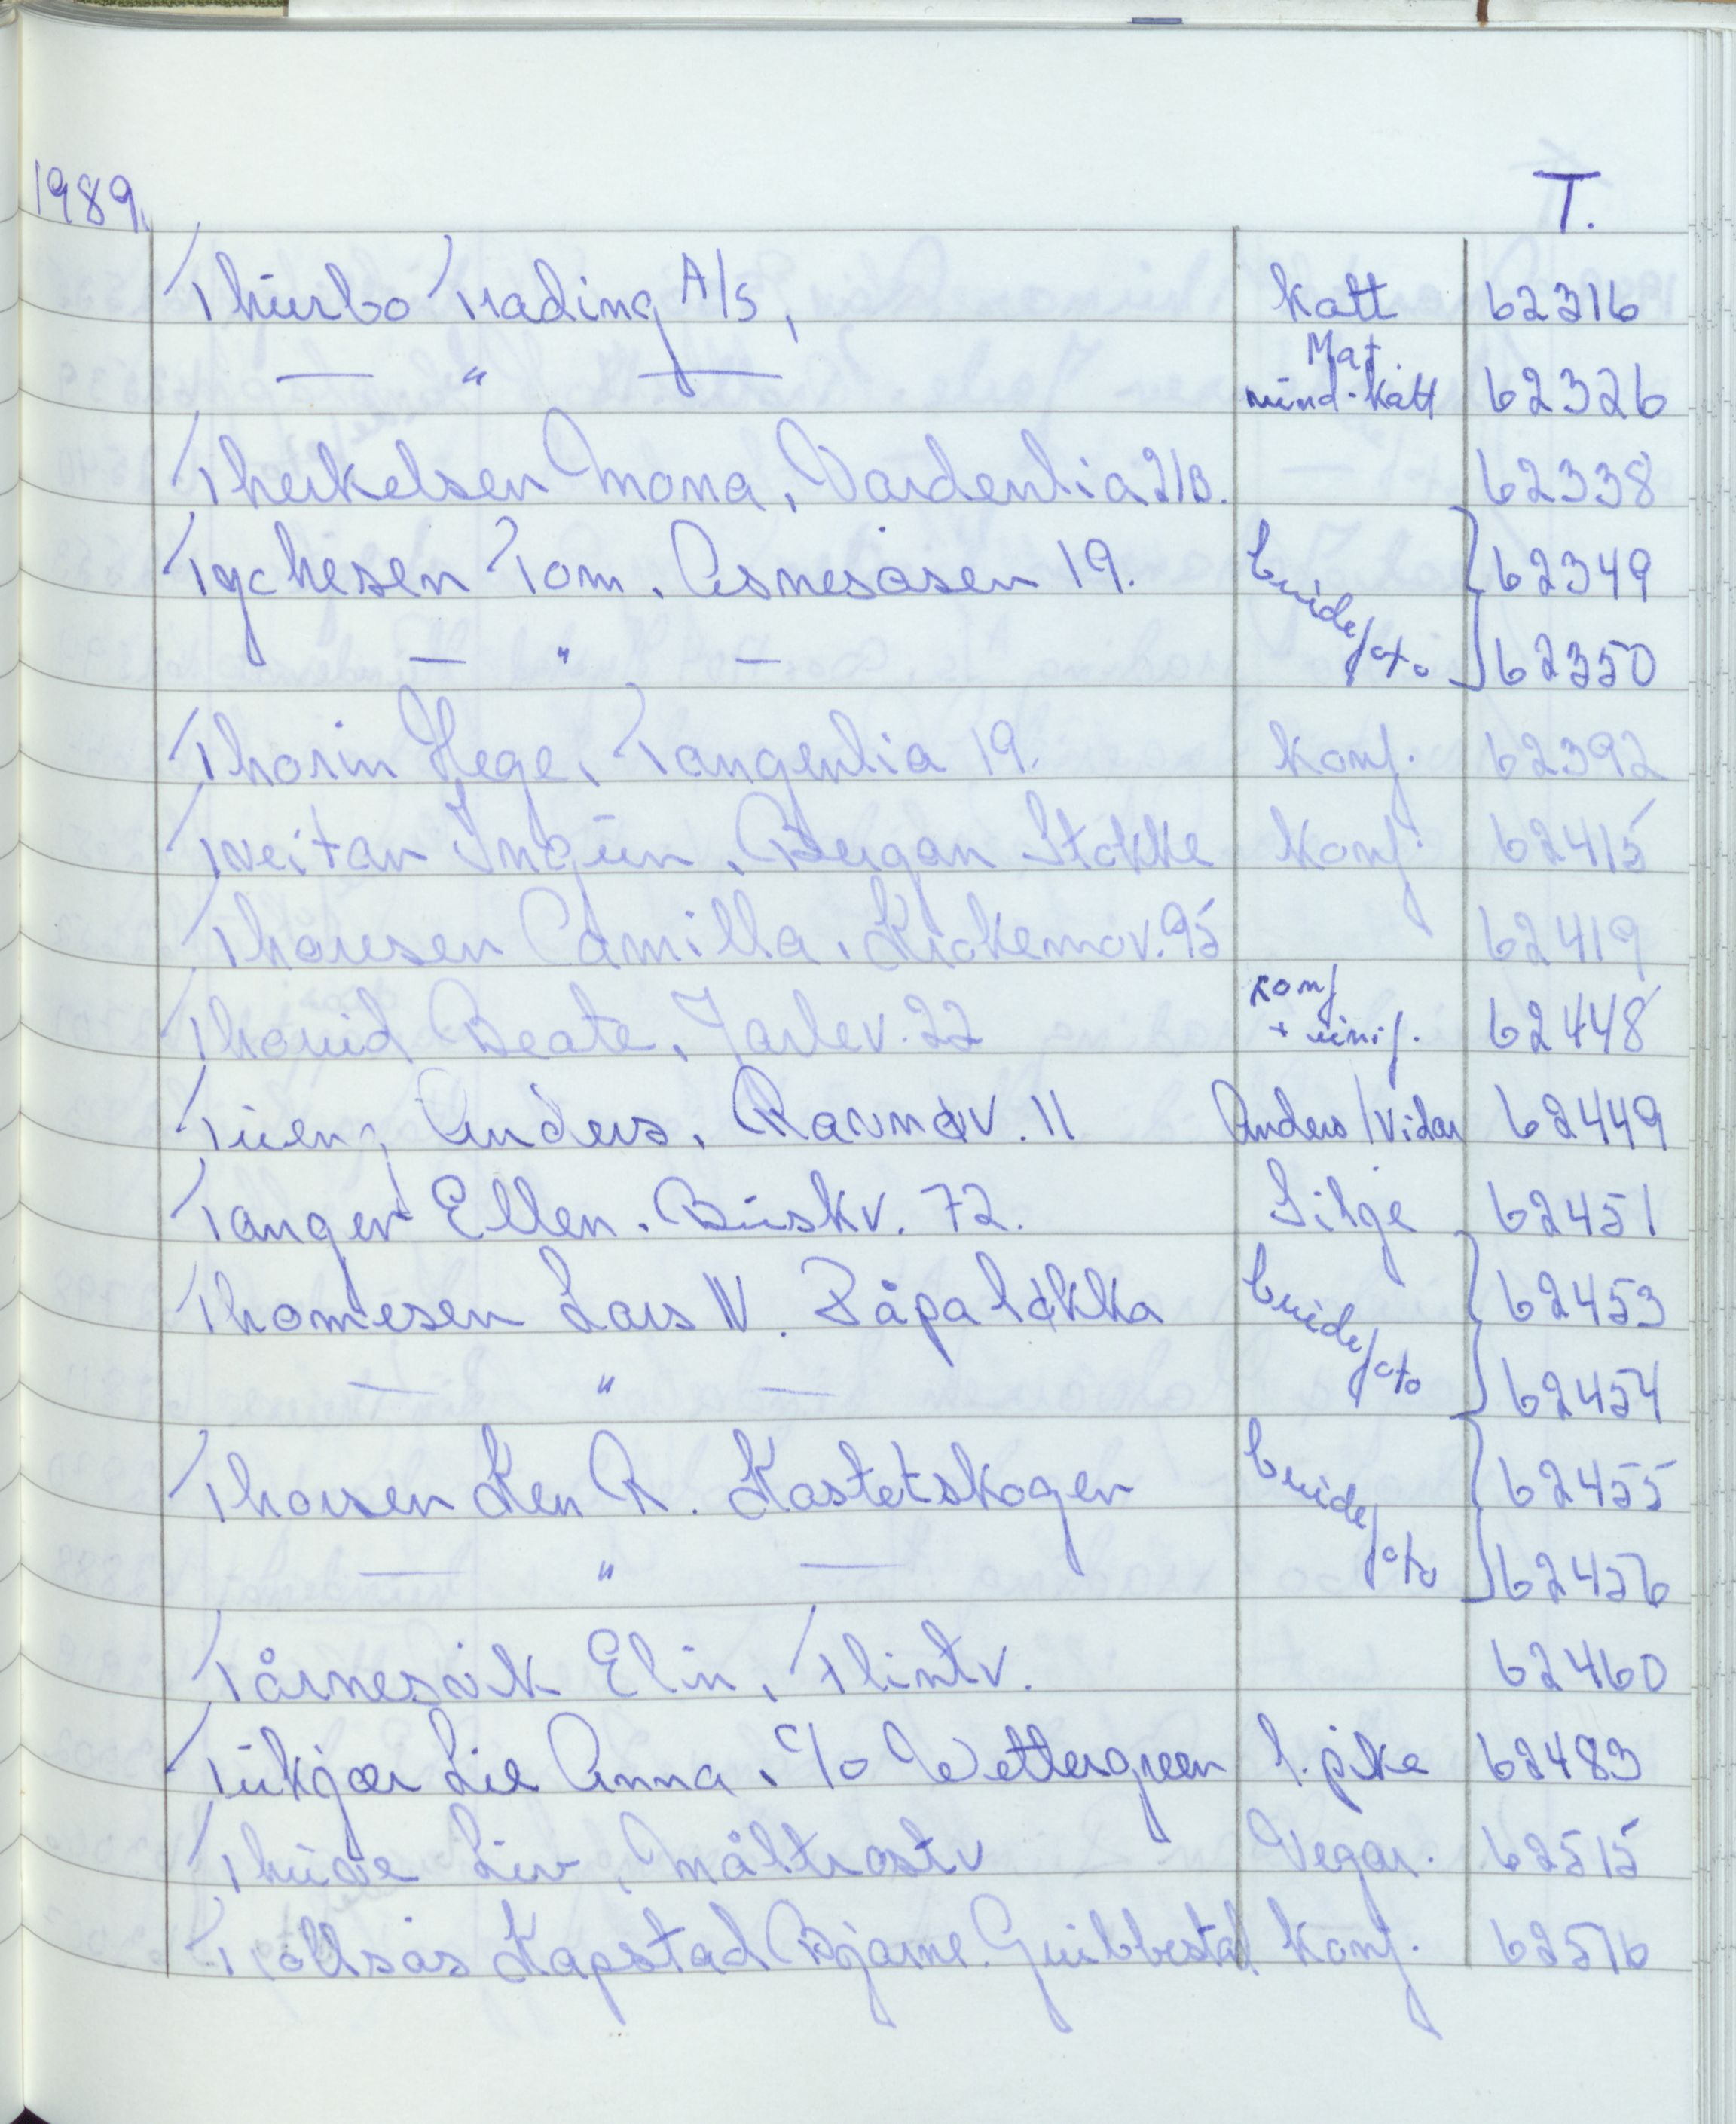 1989.
T.
Thürbo Trading A/S, Katt 62316
— " — Mat münd. Katt 62326
Therkelsen Mona, Vardenlia 21B. 62338
Tychesen Tom, Asnesåsen 19. brude/oto 62349
— " — 62350
Thorin Hege, Tangenlia 19. Konf. 62392
Tveitan Ingün, Bergan Stokke Konf. 62415
Thoresen Camilla, Krokemov. 95 62419
Thorud Beate, Jarlev. 22 Konf + ünif. 62448
Tüeng Anders, Ravnøv. 11 Anders/Vidar 62449
Tangen Ellen. Büskv. 72. Silje 62451
Thomesen Lars W. Påpaløkka brude/oto 62453
— " — 62454
Thorsen Ken R. Kastetskogen brude/oto 62455
— " — 62456
Tårnesvik Elin, Flintv. 62460
Tükjær Lie Anna, c/o Wettergreen l. pike 62483
Thüve Liv, Måltrostv Vegar. 62515
Trollsås Kapstad Bjarne. Grübbestad Konf. 62516